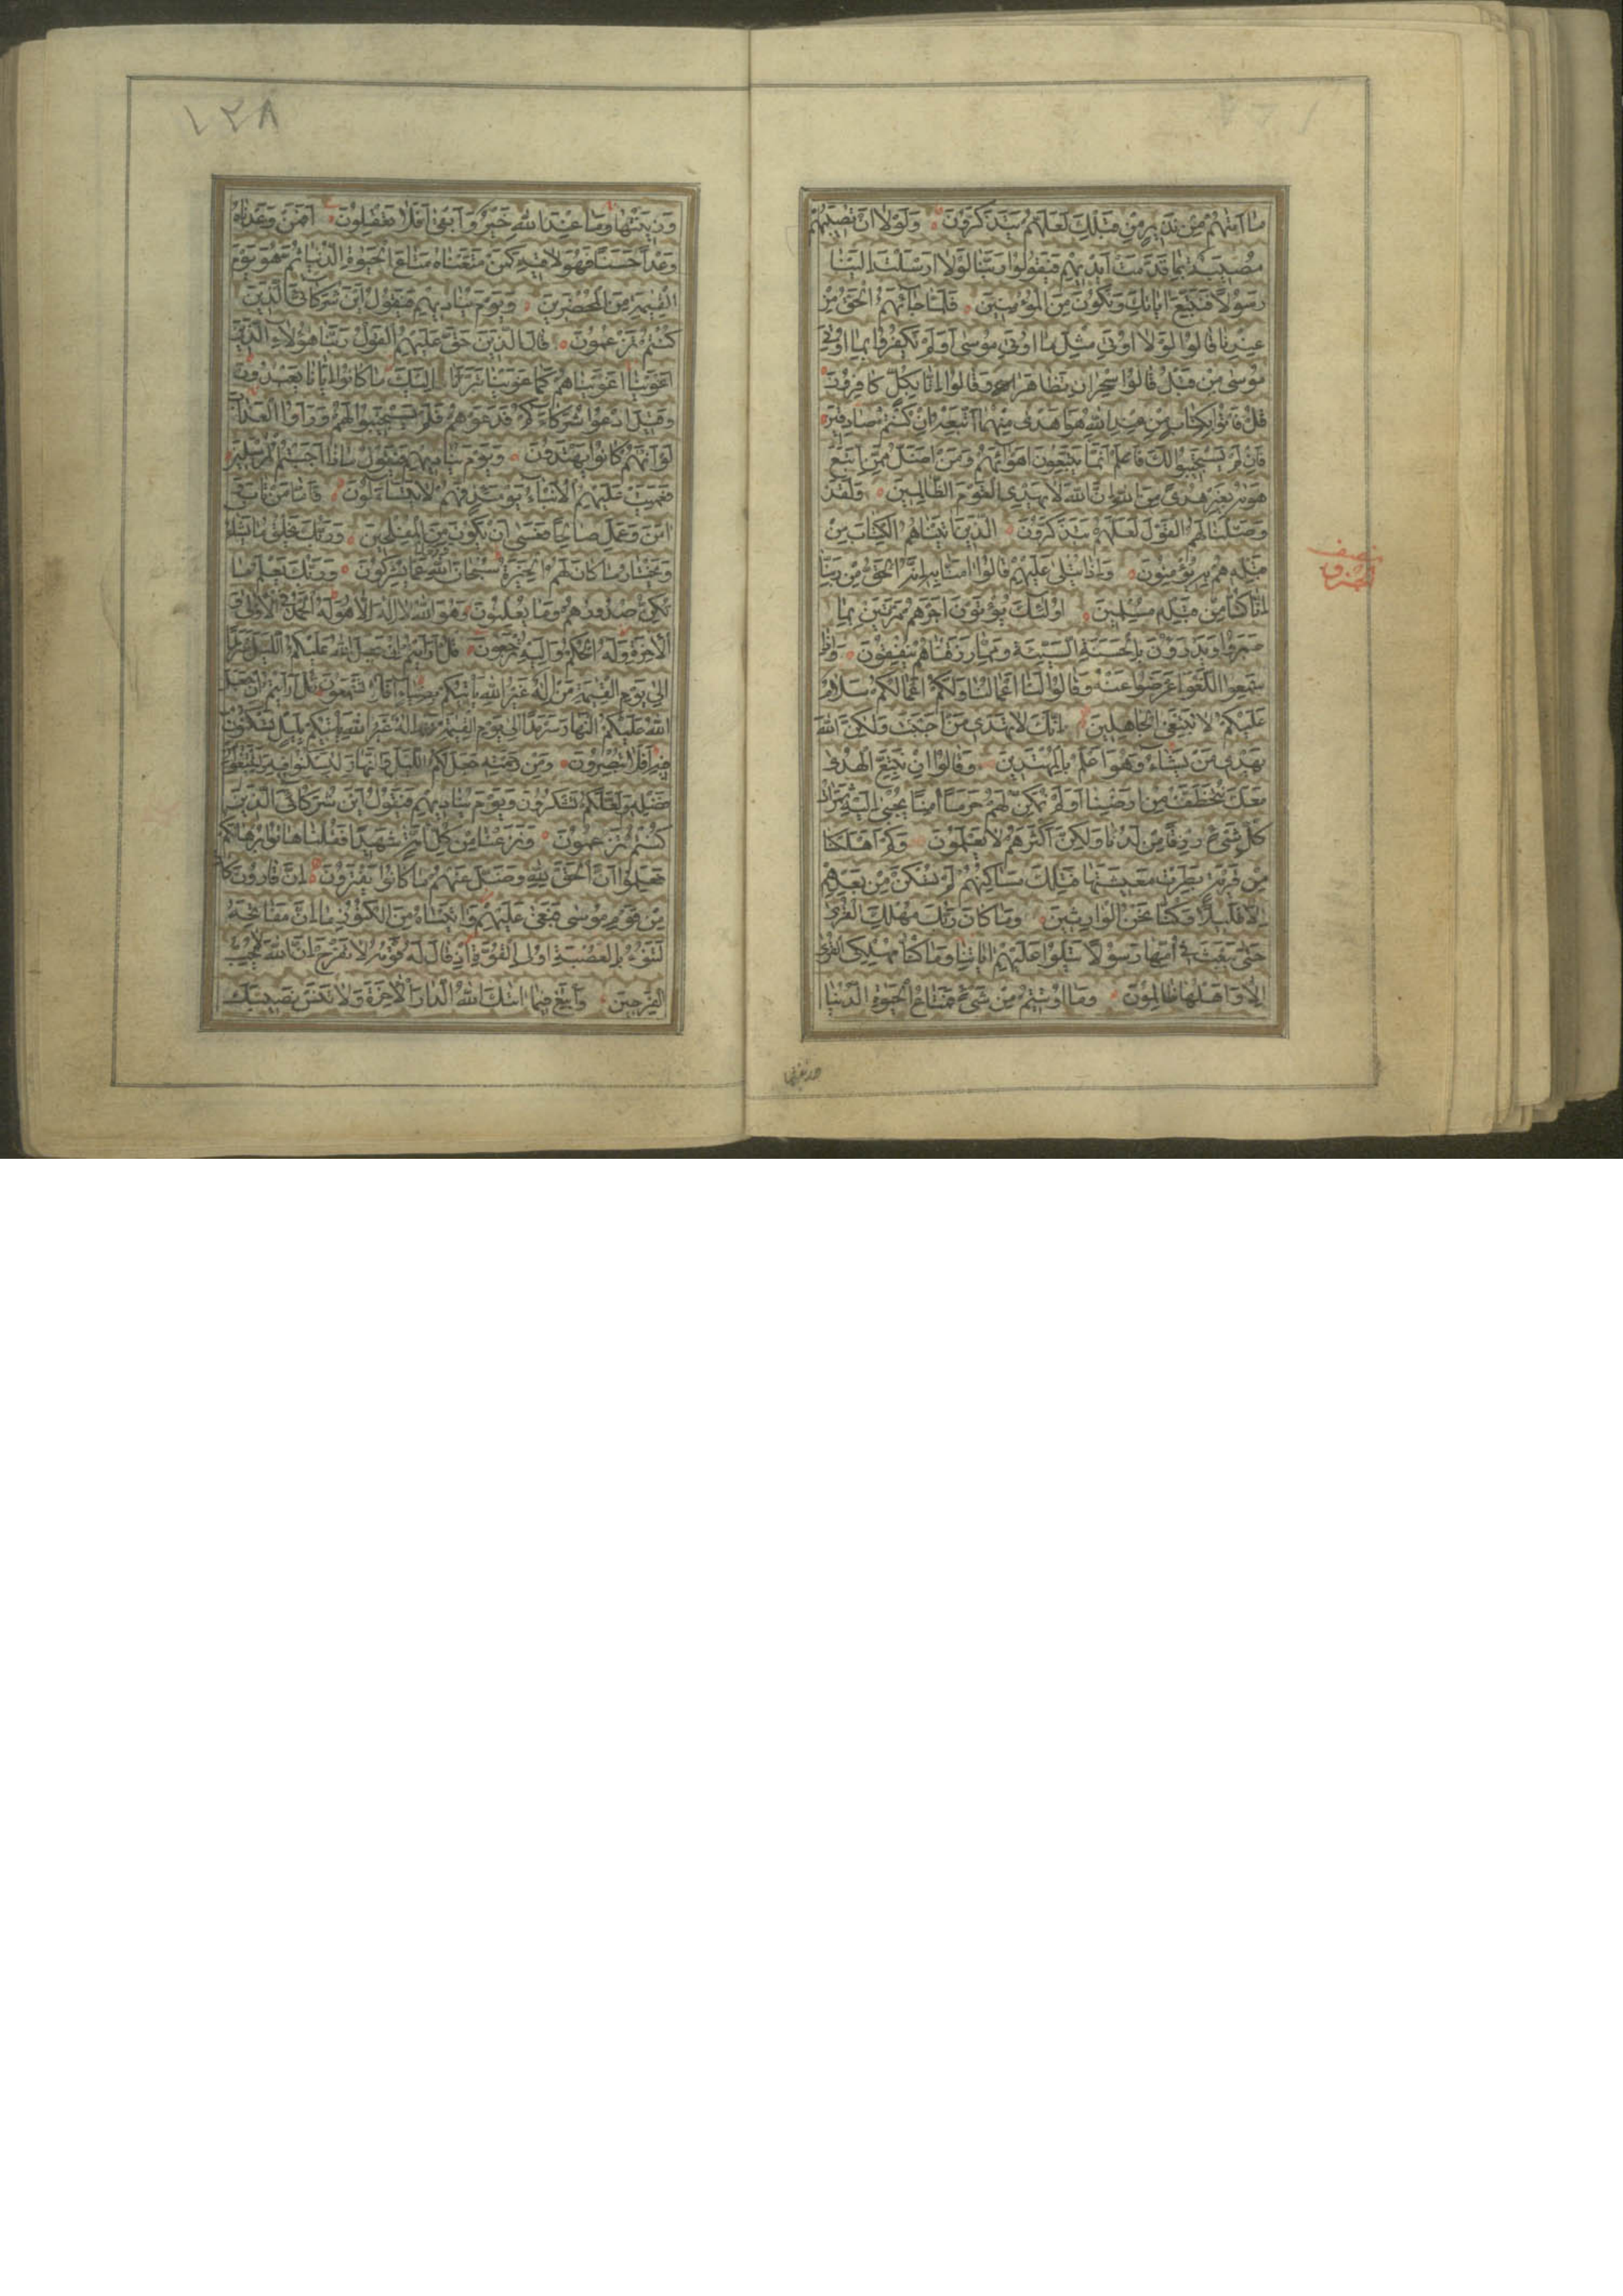 ما اتيهم من نذير من قبلك لعلهم يتذكرون ولولا ان تصيبهم
مصيبة بما قدمت ايديهم فيقولوا ربنا لولا ارسلت الينا
رسولا فنتبع اياتك ونكون من المؤمنين فلما جائهم الحق من
عندنا قالوا لولا اوتي مثل ما اوتي موسى اولم يكفروا بما اوتي
موسى من قبل قالوا سحران تظاهرا وقالوا انا بكل كافرون
قل فاتوا بكتاب من عند الله هو اهدى منهما اتبعه ان كنتم صادقين
فان لم يستجيبوا لك فاعلم انما يتبعون اهوائهم ومن اضل ممن اتبع
هويه بغير هدى من الله ان الله لا يهدي القوم الظالمين ولقد
وصلنا لهم القول لعلهم يتذكرون الذين اتيناهم الكتاب من
قبله هم به يؤمنون واذا يتلى عليهم قالوا امنا به انه الحق من ربنا
انا كنا من قبله مسلمين اولئك يؤتون اجرهم مرتين بما
صبروا ويدرؤن بالحسنة السيئة ومما رزقناهم ينفقون واذا
سمعوا اللغو اعرضوا عنه وقالوا لنا اعمالنا ولكم اعمالكم سلام
عليكم لا نبتغي الجاهلين انك لا تهدي من احببت ولكن الله
يهدي من يشاء وهو اعلم بالمهتدين وقالوا ان نتبع الهدى
معك نتخطف من ارضنا اولم نمكن لهم حرما امنا يجبى اليه ثمرات
كل شيء رزقا من لدنا ولكن اكثرهم لا يعلمون وكم اهلكنا
من قرية بطرت معيشتها فتلك مساكنهم لم تسكن من بعدهم
الا قليلا وكنا نحن الوارثين وما كان ربك مهلك القرى
حتى يبعث في امها رسولا يتلوا عليهم اياتنا وما كنا مهلكي القرى
الا واهلها ظالمون وما اوتيتم من شيء فمتاع الحيوة الدنيا
وزينتها
نصف
١٢٨
وزينتها وما عند الله خير وابقى افلا تعقلون افمن وعدناه
وعدا حسنا فهو لاقيه كمن متعناه متاع الحيوة الدنيا ثم هو يوم
القيمة من المحضرين ويوم يناديهم فيقول اين شركائي الذين
كنتم تزعمون قال الذين حق عليهم القول ربنا هؤلاء الذين
اغوينا اغويناهم كما غوينا تبرانا اليك ما كانوا ايانا يعبدون
وقيل ادعوا شركاءكم فدعوهم فلم يستجيبوا لهم وراوا العذاب
لو انهم كانوا يهتدون ويوم يناديهم فيقول ماذا اجبتم المرسلين
فعميت عليهم الانباء يومئذ فهم لا يتساءلون فاما من تاب و
امن وعمل صالحا فعسى ان يكون من المفلحين وربك يخلق ما يشاء
ويختار ما كان لهم الخيرة سبحان الله عما يشركون وربك يعلم ما
تكن صدورهم وما يعلنون وهو الله لا اله الا هو له الحمد في الاولى و
الاخرة وله الحكم واليه ترجعون قل ارايتم ان جعل الله عليكم الليل سرمدا
الى يوم القيمة من اله غير الله ياتيكم بضياء افلا تسمعون قل ارايتم ان جعل
الله عليكم النهار سرمدا الى يوم القيمة من اله غير الله ياتيكم بليل تسكنون
فيه افلا تبصرون ومن رحمته جعل لكم الليل والنهار لتسكنوا فيه ولتبتغوا من
فضله ولعلكم تشكرون ويوم يناديهم فيقول اين شركائي الذين
كنتم تزعمون ونزعنا من كل امة شهيدا فقلنا هاتوا برهانكم
فعلموا ان الحق لله وضل عنهم ما كانوا يفترون ان قارون كان
من قوم موسى فبغى عليهم واتيناه من الكنوز ما ان مفاتحه
لتنوء بالعصبة اولي القوة اذ قال له قومه لا تفرح ان الله لا يحب
الفرحين وابتغ فيما اتيك الله الدار الاخرة ولا تنس نصيبك